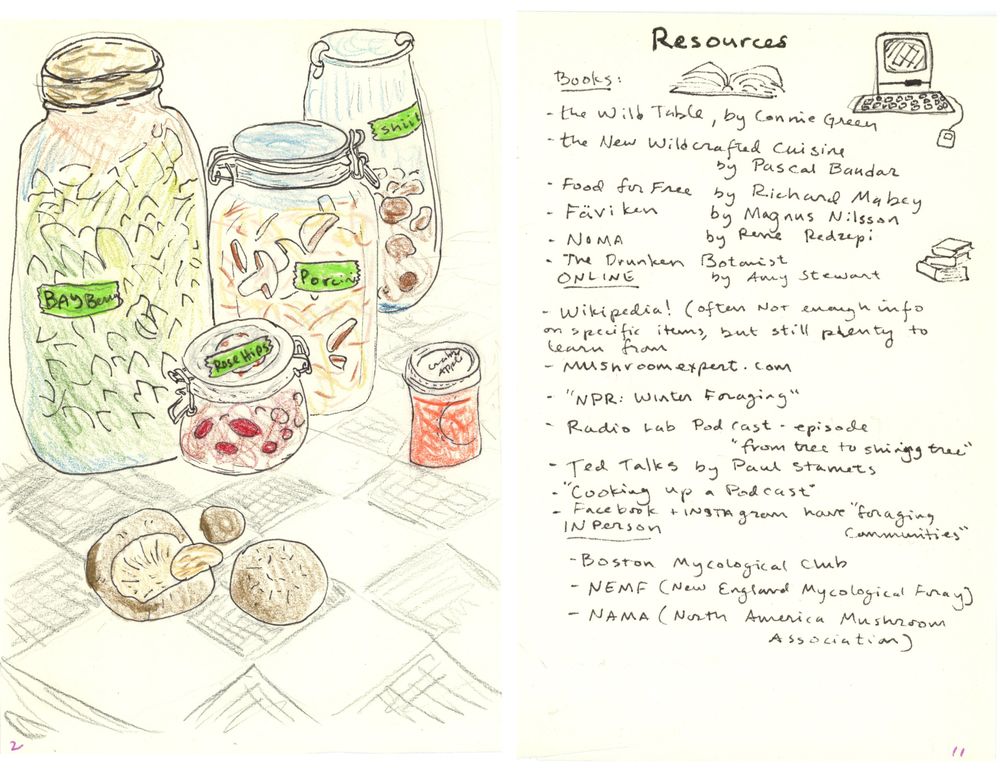 BAY Berry
Porcini
shiit
Rose Hips
2
Resources
Books:
- the Wild Table, by Connie Green
- the New Wildcrafted Cuisine
by Pascal Baudar
- Food for Free by Richard Mabey
- Fäviken by Magnus Nilsson
- NOMA by René Redzepi
- The Drunken Botanist
by Amy Stewart
ONLINE
- Wikipedia! (often NOT enough info
on specific items, but still plenty to
learn from
- MUShroomexpert.com
- "NPR: Winter Foraging"
- Radio Lab Podcast - episode
"from tree to shining tree"
- Ted Talks by Paul Stamets
- "Cooking up a Podcast"
- Facebook + INSTAgram have "foraging
Communities"
IN Person
- Boston Mycological Club
- NEMF (New England Mycological Foray)
- NAMA (North America Mushroom
Association)
11